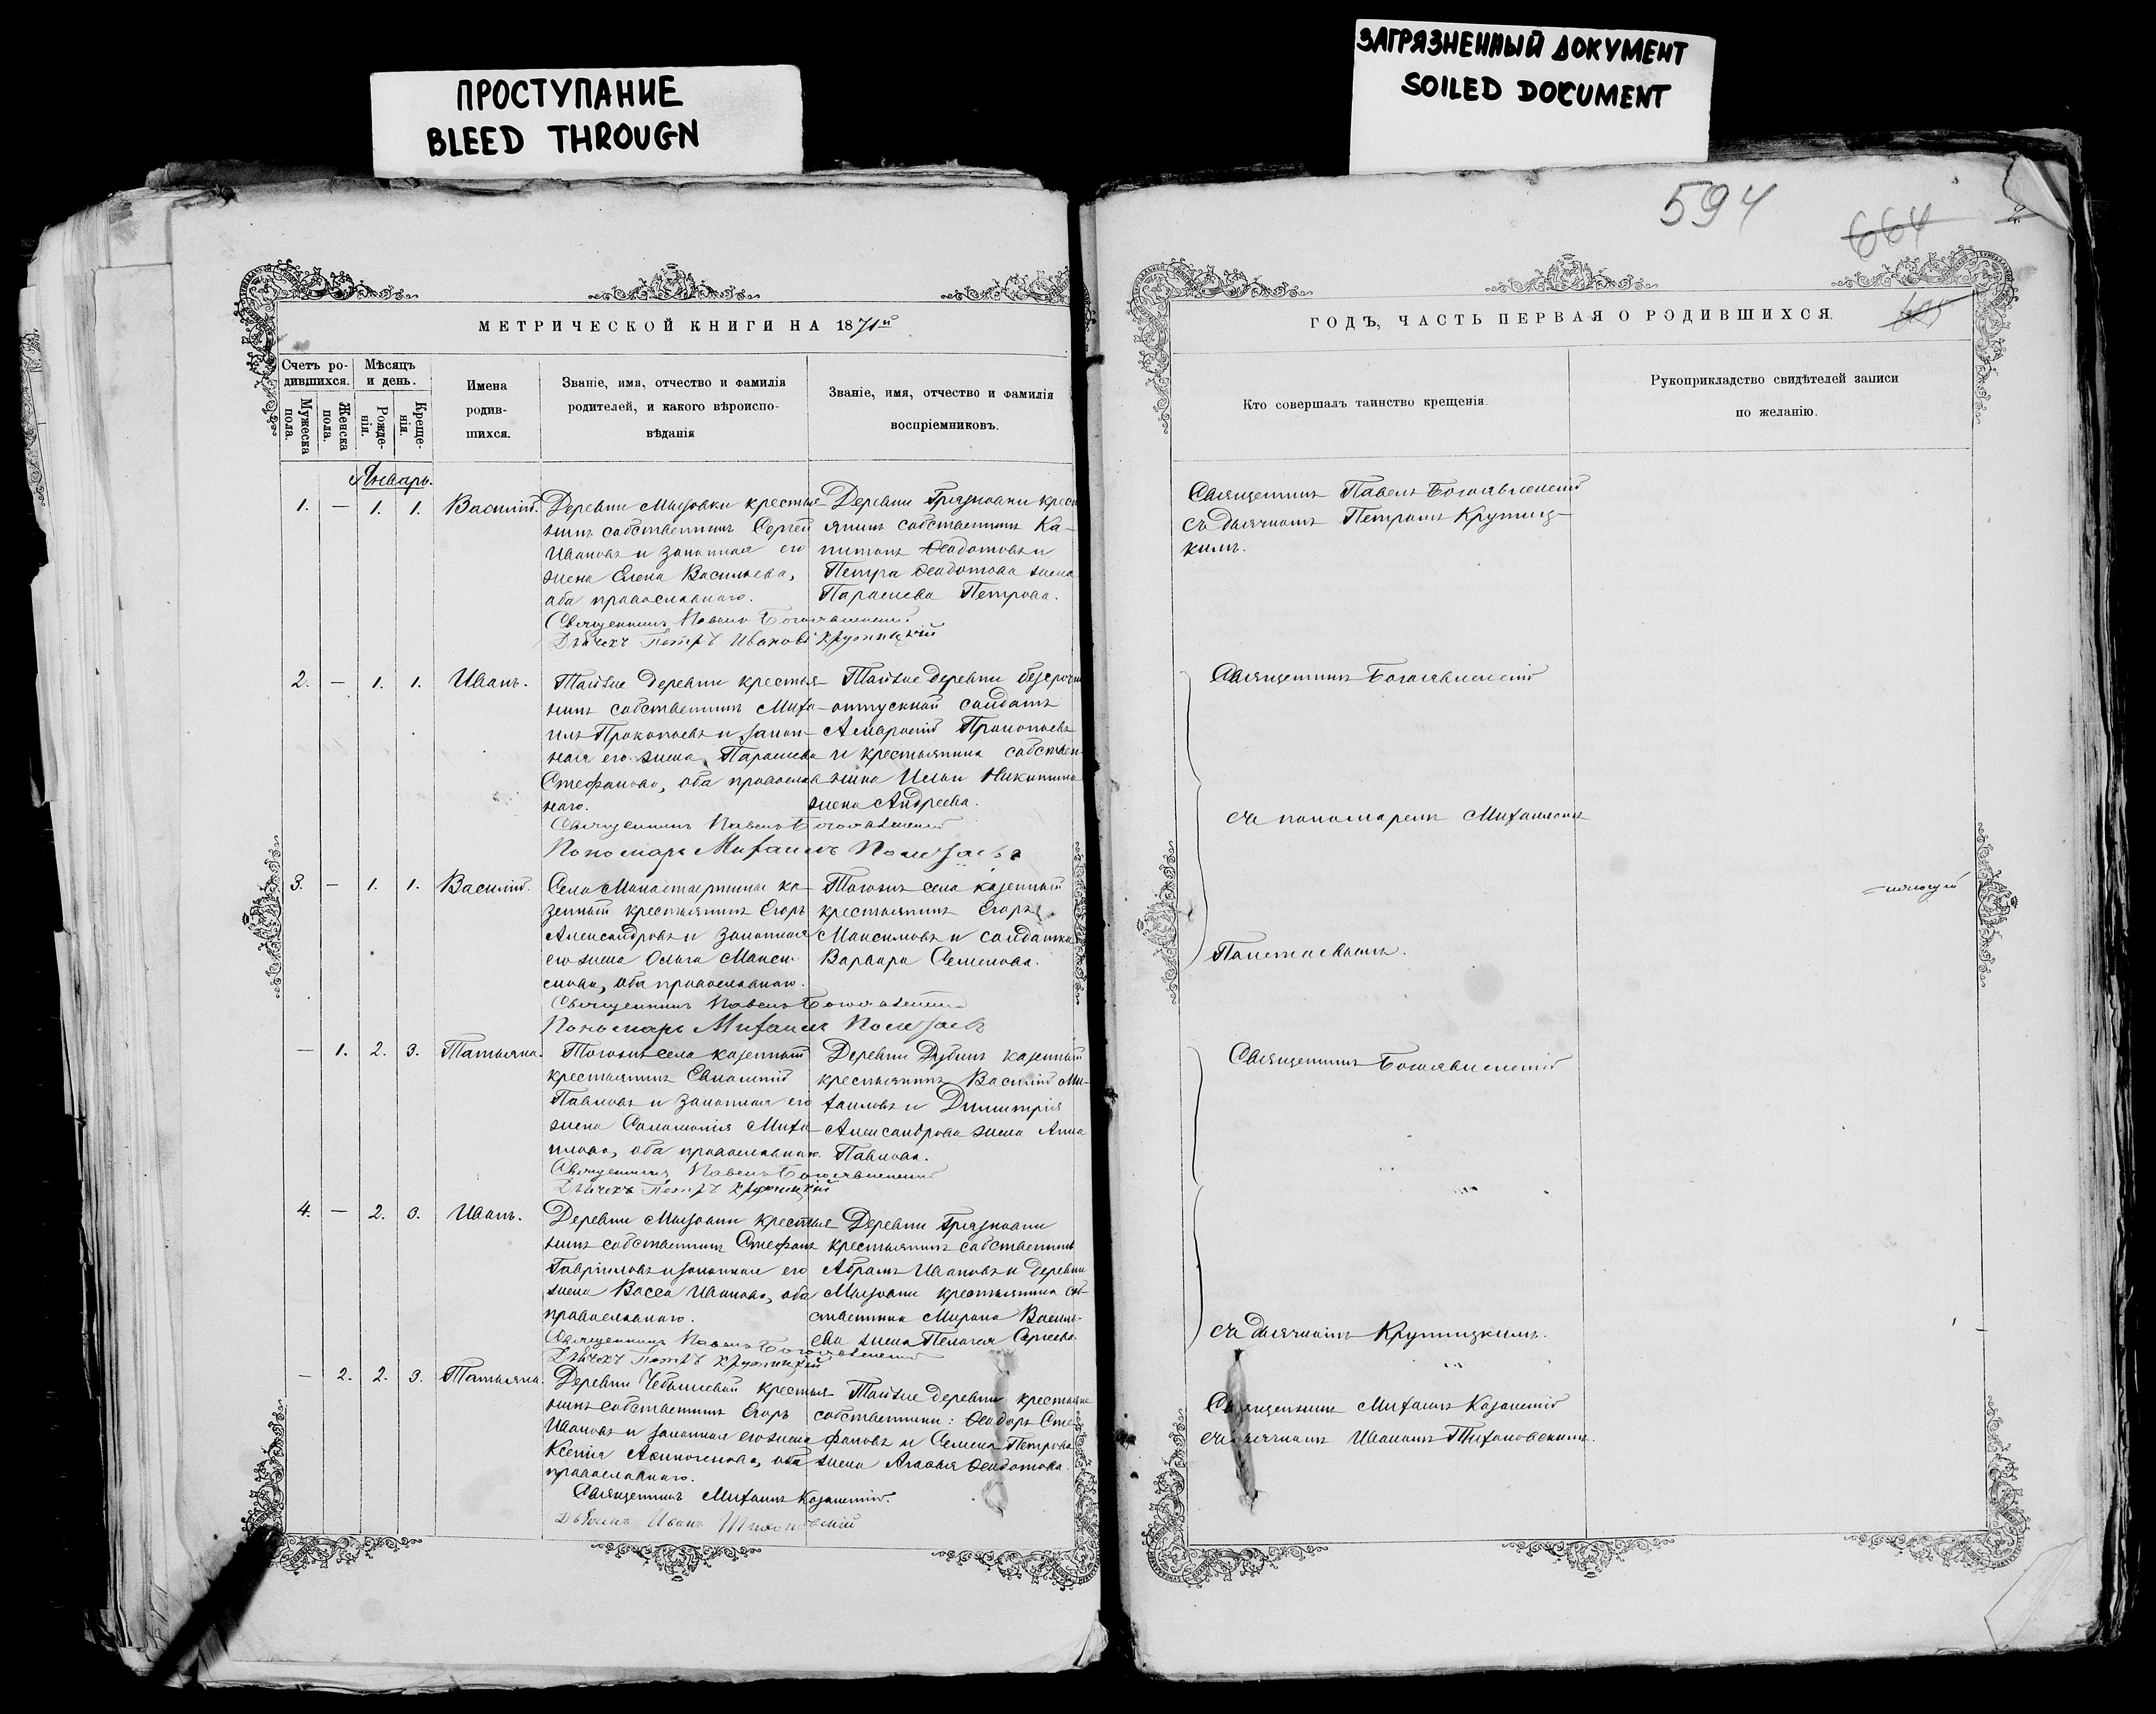 ПРОСТУПАНИЕ
BLEED THROUGN
ЗАГРЯЗНЕННЫЙ ДОКУМЕНТ
SOILED DOCUMENT
594
664
МЕТРИЧЕСКОЙ КНИГИ НА 1871й
Счетъ родившихся.
Мужеска пола.
Женска пола.
Мѣсяцъ и день.
Рожденія.
Крещенія.
Имена
родив-
шихся.
Званіе, имя, отчество и фамилія
родителей, и какого вѣроиспо-
вѣданія
Званіе, имя, отчество и фамилія
воспріемниковъ.
Январь.
1. — 1. 1. Василій.
Деревни Мызовки крестья-
нинъ собственникъ Сергей
Ивановъ и законная его
жена Елена Васильева,
оба православнаго.
Священникъ Павелъ Богоявленскій
Дьячекъ Петръ Ивановъ Крутицкій
Деревни Грязновки крест
янинъ собственникъ Ка-
питонъ Ѳеодотовъ и
Петра Ѳеодотова жена
Параскева Петрова.
2. — 1. 1. Иванъ.
Тойже деревни крестья-
нинъ собственникъ Миха-
илъ Прокопьевъ и закон-
ная его жена Параскева
Стефанова, оба православ
наго.
Священникъ Павелъ Богоявленскій
Пономарь Михаилъ
Тойже деревни безсрочно
отпускной солдатъ
Прокопьевъ
и крестьянина собствен-
ника Ильи Никитина
жена Андреева.
3. — 1. 1. Василій.
Села Монастырщины ка-
зенный крестьянинъ Егоръ
Александровъ и законная
его жена Ольга Макси-
мова, оба православнаго.
Священникъ Павелъ Богоявленскій
Пономарь Михаилъ
Тогожъ села казенный
крестьянинъ Егоръ
Максимовъ и солдатка
Варвара Семенова.
— 1. 2. 3. Татьяна.
Тогожъ села казенный
крестьянинъ Евсигній
Павловъ и законная его
жена Соломонія Миха-
илова, оба православнаго.
Священникъ Павелъ Богоявленскій
Дьячекъ Петръ Крутицкій
Деревни казенный
крестьянинъ Василій Ми-
хаиловъ и Димитрія
Александрова жена Анна
Павлова.
4. — 2. 3. Иванъ.
Деревни Мызовки крестья-
нинъ собственникъ Стефанъ
Гавріиловъ и законная его
жена Васса Иванова, оба
православнаго.
Священникъ Павелъ Богоявленскій
Дьячекъ Петръ Крутицкій
Деревни Грязновки
крестьянинъ собственникъ
Абрамъ Ивановъ и деревни
Мызовки крестьянина соб-
ственника Мирона Василь-
ева жена Пелагея Сергеева.
— 2. 2. 3. Татьяна.
Деревни Чебышевой крестья-
нинъ собственникъ Егоръ
Ивановъ и законная его жена
Ксенія, оба
православнаго.
Священникъ Михаилъ Казанскій.
Дьячекъ Иванъ Тихоновскій
Тойже деревни крестьяне
собственники: Ѳеодоръ Сте-
фановъ и Семена Петрова
жена Агафья Ѳеодотова.
ГОДЪ, ЧАСТЬ ПЕРВАЯ О РОДИВШИХСЯ.
Кто совершалъ таинство крещенія.
Рукоприкладство свидѣтелей записи
по желанію.
Священникъ Павелъ Богоявленскій
съ дьячкомъ Петромъ Крутиц-
кимъ.
Священникъ Богоявленскій
съ пономаремъ Михаиломъ
Священникъ Богоявленскій
съ дьячкомъ Крутицкимъ.
Священникъ Михаилъ Казанскій
съ дьячкомъ Иваномъ Тихоновскимъ.